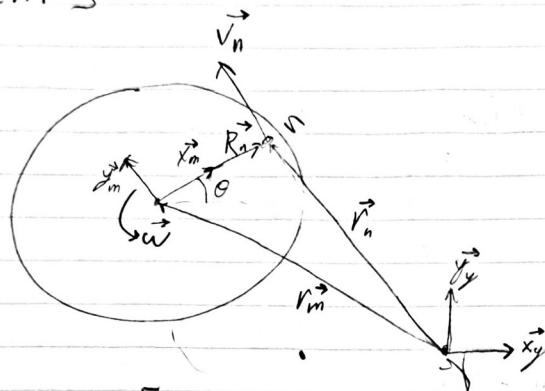 V⃗n
n
x⃗m
R⃗n
y⃗m
θ
ω⃗
r⃗n
r⃗m
y⃗y
x⃗y